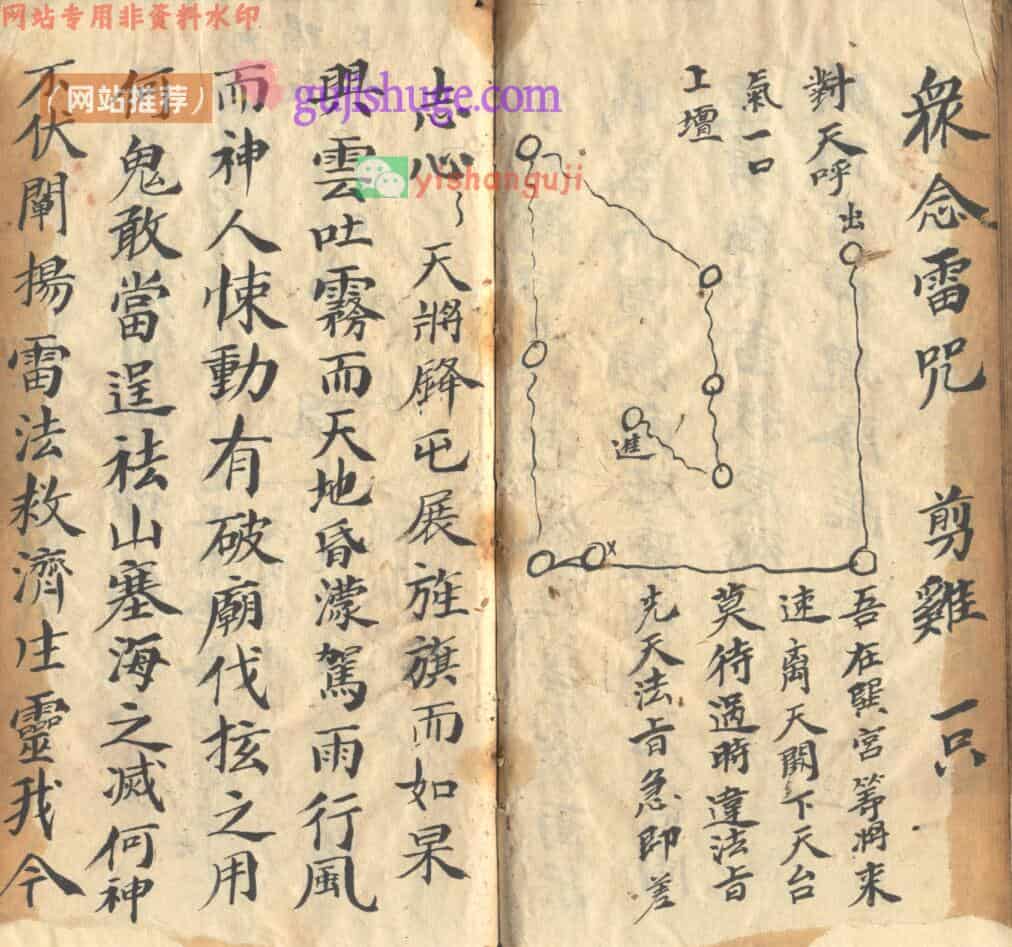 网站专用非资料水印
(网站推荐)
gujishuge.com
yishanguji
眾念雷咒 剪雞一只
對天呼出
氣一口
工壇
進
吾在巽宮等將来
速离天闕下天台
莫待過時違法旨
先天法旨急即差
志心 天將降屯展旌旗而如杲
興雲吐霧而天地昏濛駕雨行風
而神人悚動有破廟伐坛之用
何鬼敢當逞祛山塞海之滅何神
不伏闡揚雷法救濟生靈我今